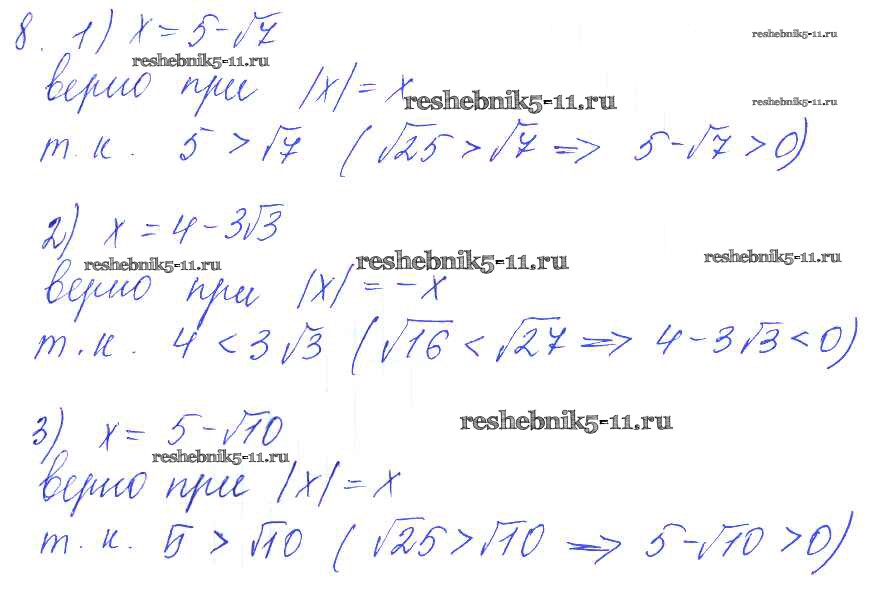 8. 1) x = 5 - √7
reshebnik5-11.ru
reshebnik5-11.ru
верно при |x| = x
reshebnik5-11.ru
reshebnik5-11.ru
т.к. 5 > √7 ( √25 > √7 => 5 - √7 > 0)
2) x = 4 - 3√3
reshebnik5-11.ru
reshebnik5-11.ru
reshebnik5-11.ru
верно при |x| = -x
т.к. 4 < 3√3 ( √16 < √27 => 4 - 3√3 < 0)
3) x = 5 - √10
reshebnik5-11.ru
reshebnik5-11.ru
верно при |x| = x
т.к. 5 > √10 ( √25 > √10 => 5 - √10 > 0)